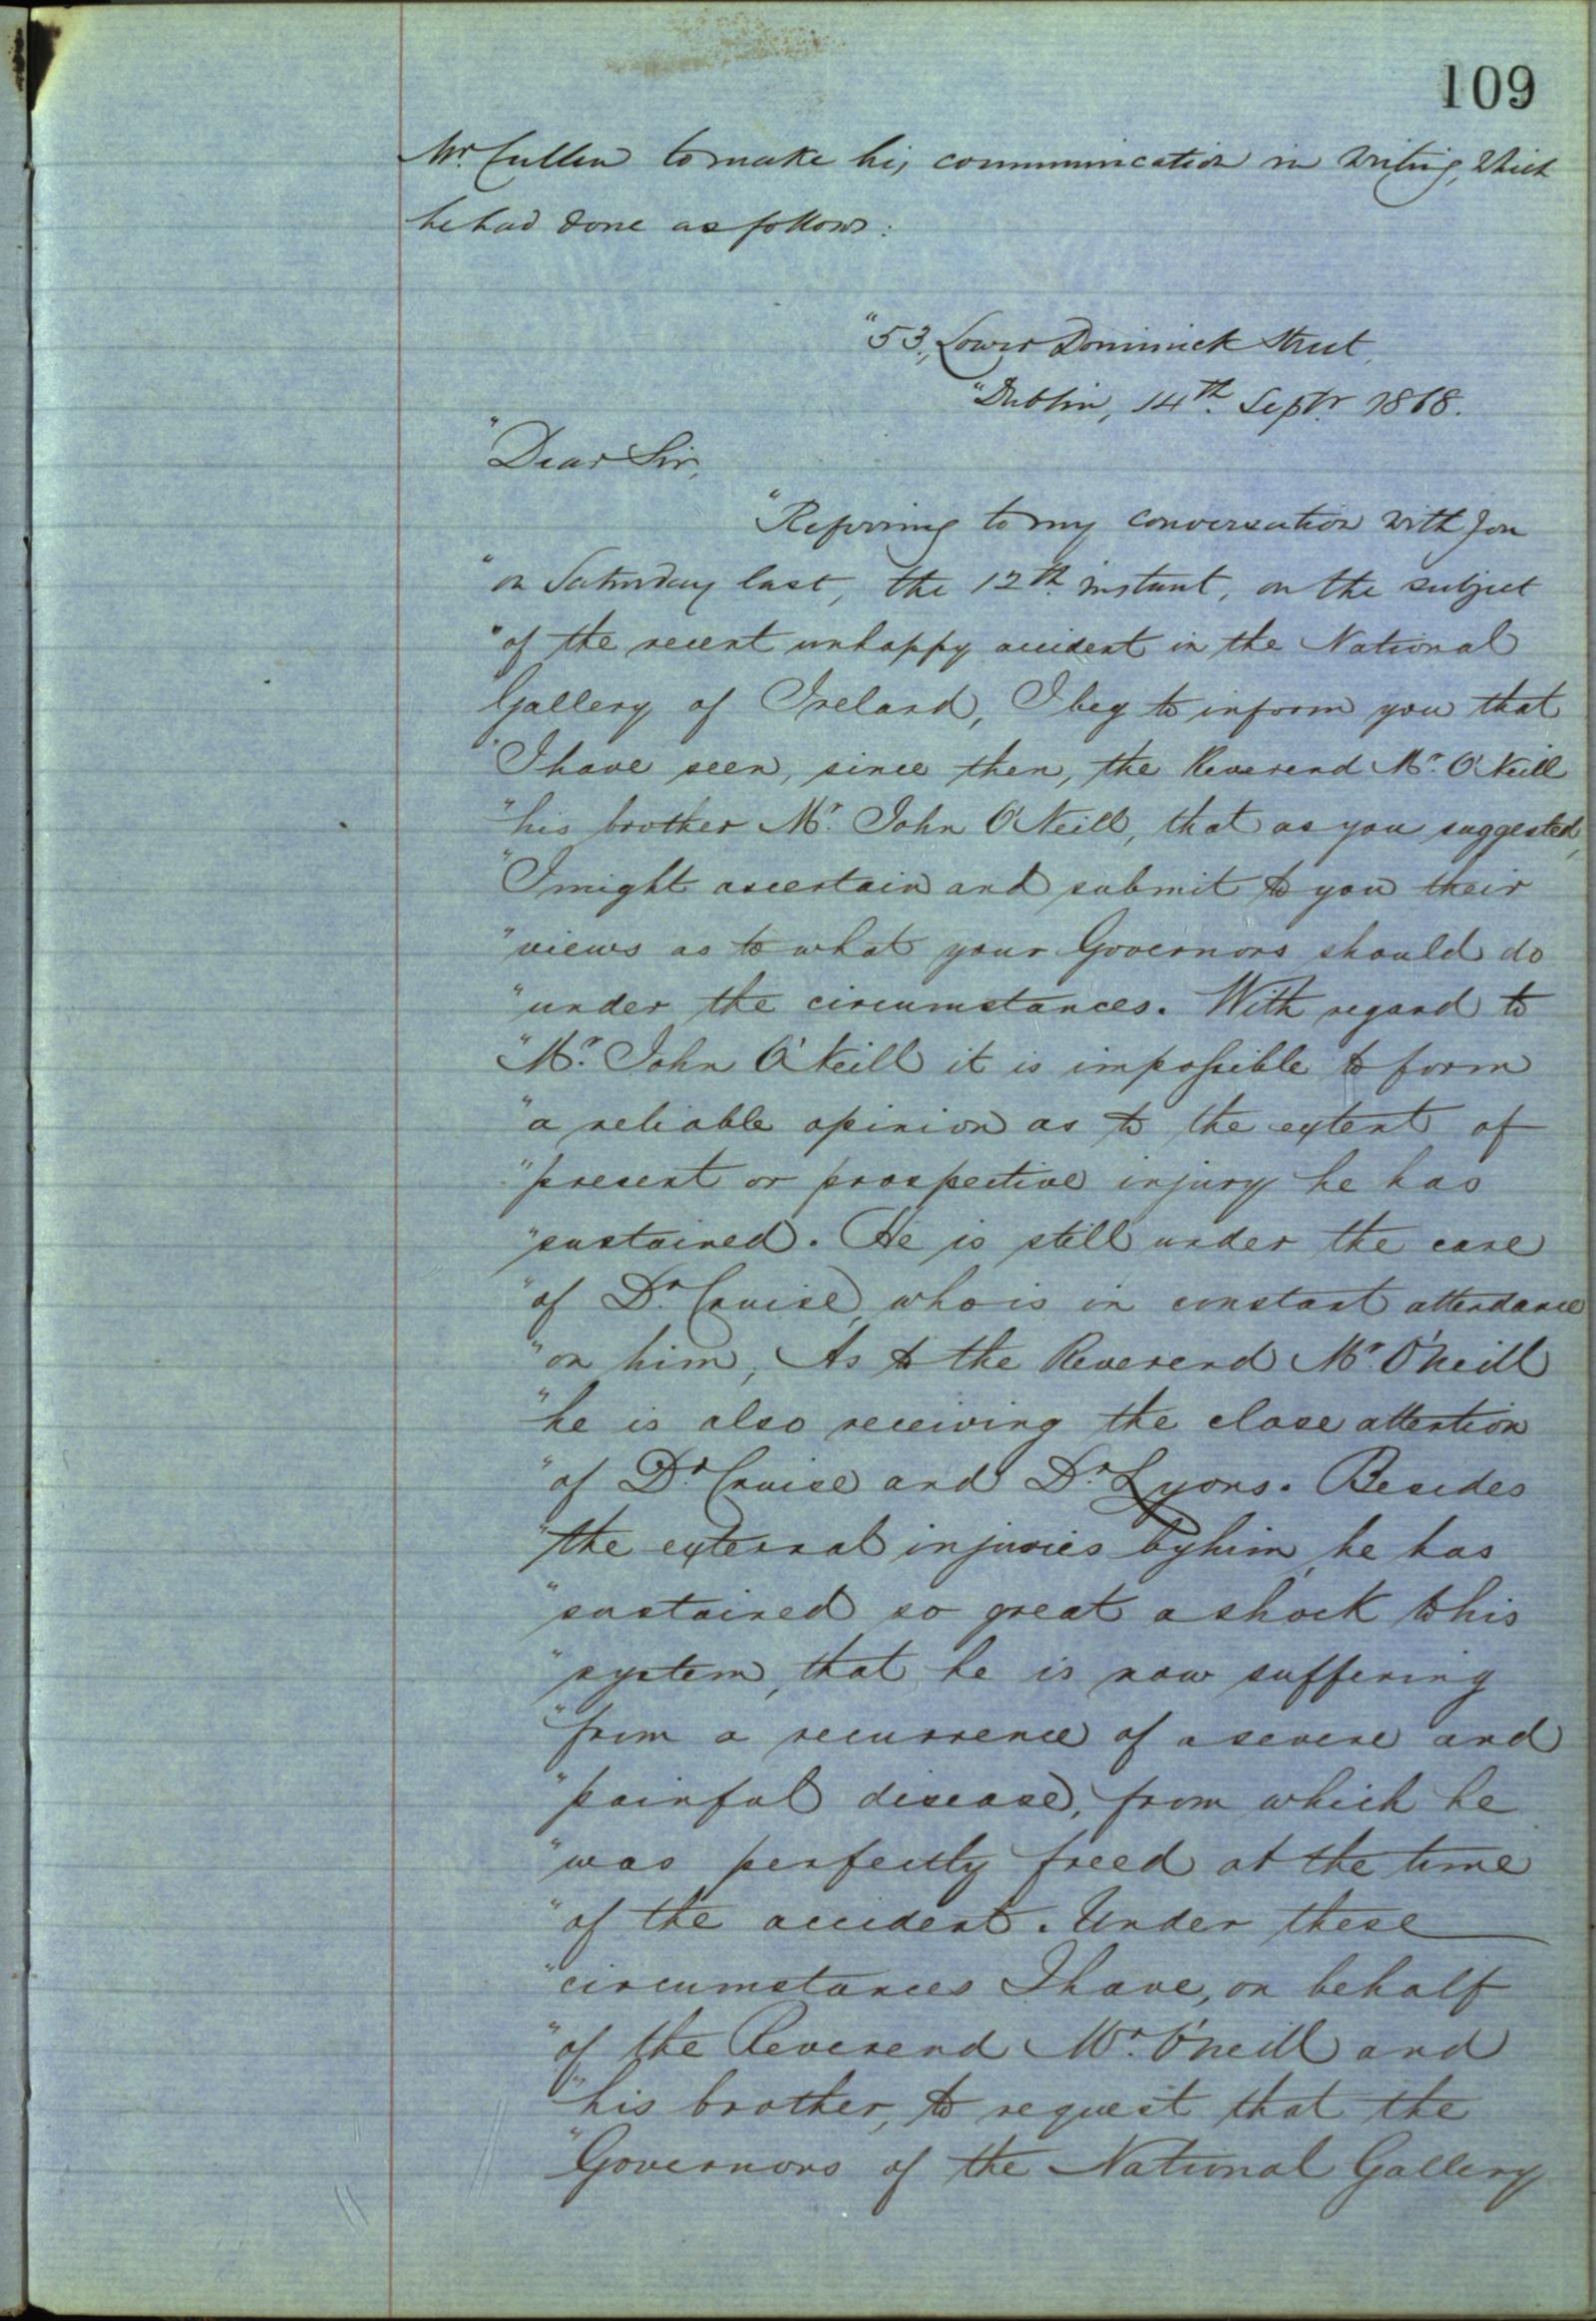 109
Mr. Cullen to make his communication in writing, which
he had done as follows:
"53, Lower Dominick Street,
"Dublin, 14th. Septr. 1868.
"Dear Sir,
"Referring to my conversation with you
"on Saturday last, the 12th. instant, on the subject
"of the recent unhappy accident in the National
Gallery of Ireland, I beg to inform you that
"I have seen, since then, the Reverend Mr. O'Neill
"his brother Mr. John O'Neill, that as you suggested,
"I might ascertain and submit to you their
"views as to what your Governors should do
"under the circumstances. With regard to
"Mr. John O'Neill it is impossible to form
"a reliable opinion as to the extent of
"present or prospective injury he has
"sustained. He is still under the care
"of Dr. Cruise, who is in constant attendance
"on him, As to the Reverend Mr. O'Neill
"he is also receiving the close attention
"of Dr. Cruise and Dr. Lyons. Besides
"the external injuries by him, he has
"sustained so great a shock to his
"system, that he is now suffering
"from a recurrence of a severe and
"painful disease, from which he
"was perfectly freed at the time
"of the accident. Under these
"circumstances I have, on behalf
"of the Reverend Mr. O'Neill and
"his brother, to request that the
"Governors of the National Gallery